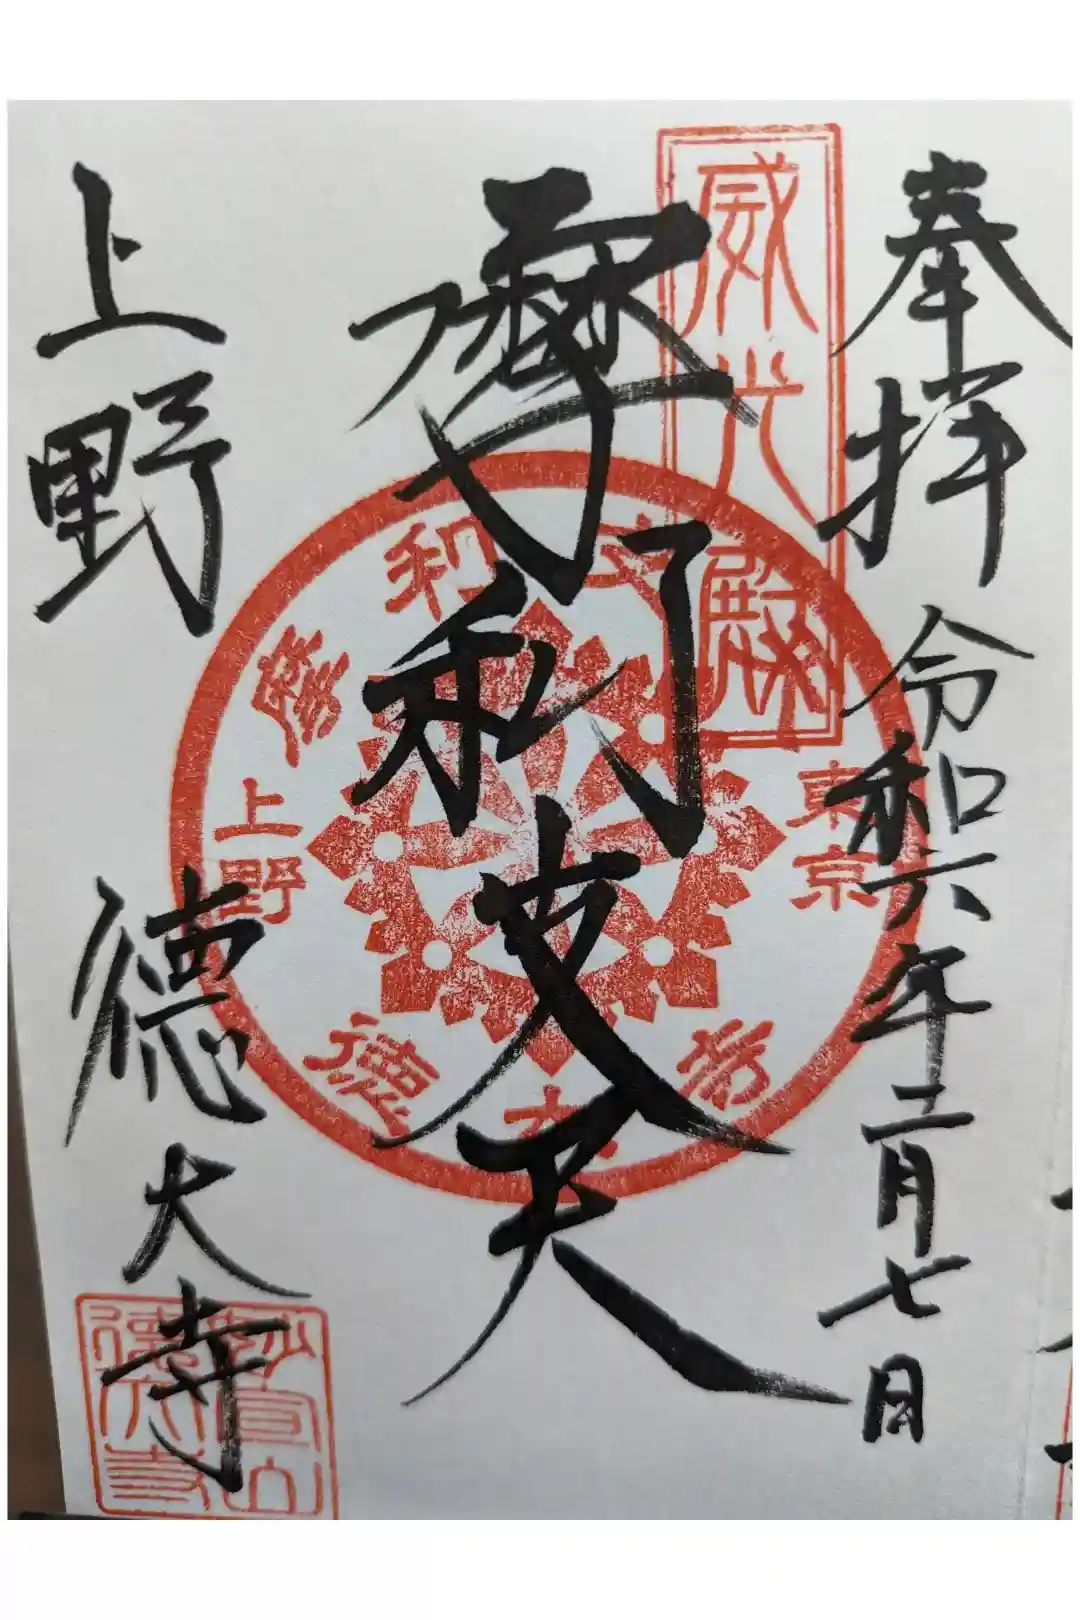 奉拝 令和六年二月七日
威光殿
摩利支天
摩利支
東京
上野
徳大寺
上野 徳大寺
妙宣山
徳大寺